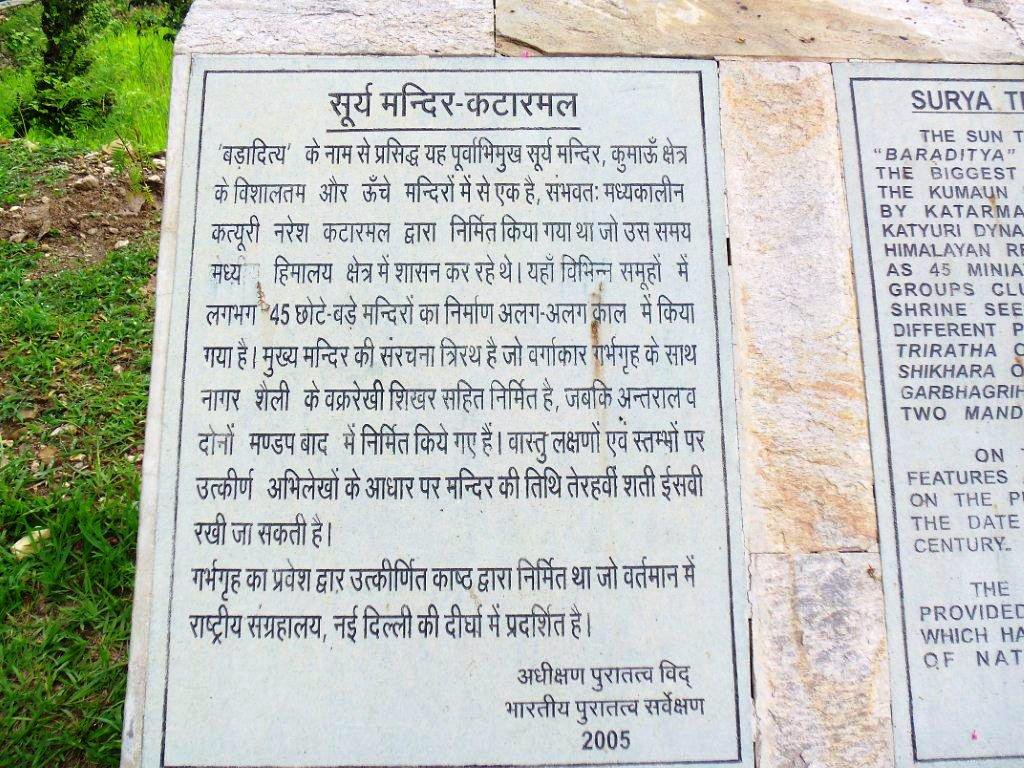 सूर्य मन्दिर-कटारमल
'बड़ादित्य' के नाम से प्रसिद्ध यह पूर्वाभिमुख सूर्य मन्दिर, कुमाऊँ क्षेत्र
के विशालतम और ऊँचे मन्दिरों में से एक है, संभवतः मध्यकालीन
कत्यूरी नरेश कटारमल द्वारा निर्मित किया गया था जो उस समय
हिमालय क्षेत्र में शासन कर रहे थे। यहाँ विभिन्न समूहों में
लगभग 45 छोटे-बड़े मन्दिरों का निर्माण अलग-अलग काल में किया
गया है। मुख्य मन्दिर की संरचना त्रिरथ है जो वर्गाकार गर्भगृह के साथ
नागर शैली के वक्ररेखी शिखर सहित निर्मित है, जबकि अन्तराल व
दोनों मण्डप बाद में निर्मित किये गए हैं। वास्तु लक्षणों एवं स्तम्भों पर
उत्कीर्ण अभिलेखों के आधार पर मन्दिर की तिथि तेरहवीं शती ईसवी
रखी जा सकती है।
गर्भगृह का प्रवेश द्वार उत्कीर्णित काष्ठ द्वारा निर्मित था जो वर्तमान में
राष्ट्रीय संग्रहालय, नई दिल्ली की दीर्घा में प्रदर्शित है।
अधीक्षण पुरातत्व विद्
भारतीय पुरातत्व सर्वेक्षण
2005
SURYA
THE SUN
"BARADITYA"
THE BIGGEST
THE KUMAUN
BY
KATYURI
HIMALAYAN
AS 45
GROUPS
SHRINE
DIFFERENT
TRIRATHA
SHIKHARA
TWO
ON
FEATURES
ON THE
THE DATE
CENTURY.
THE
PROVIDED
WHICH
OF